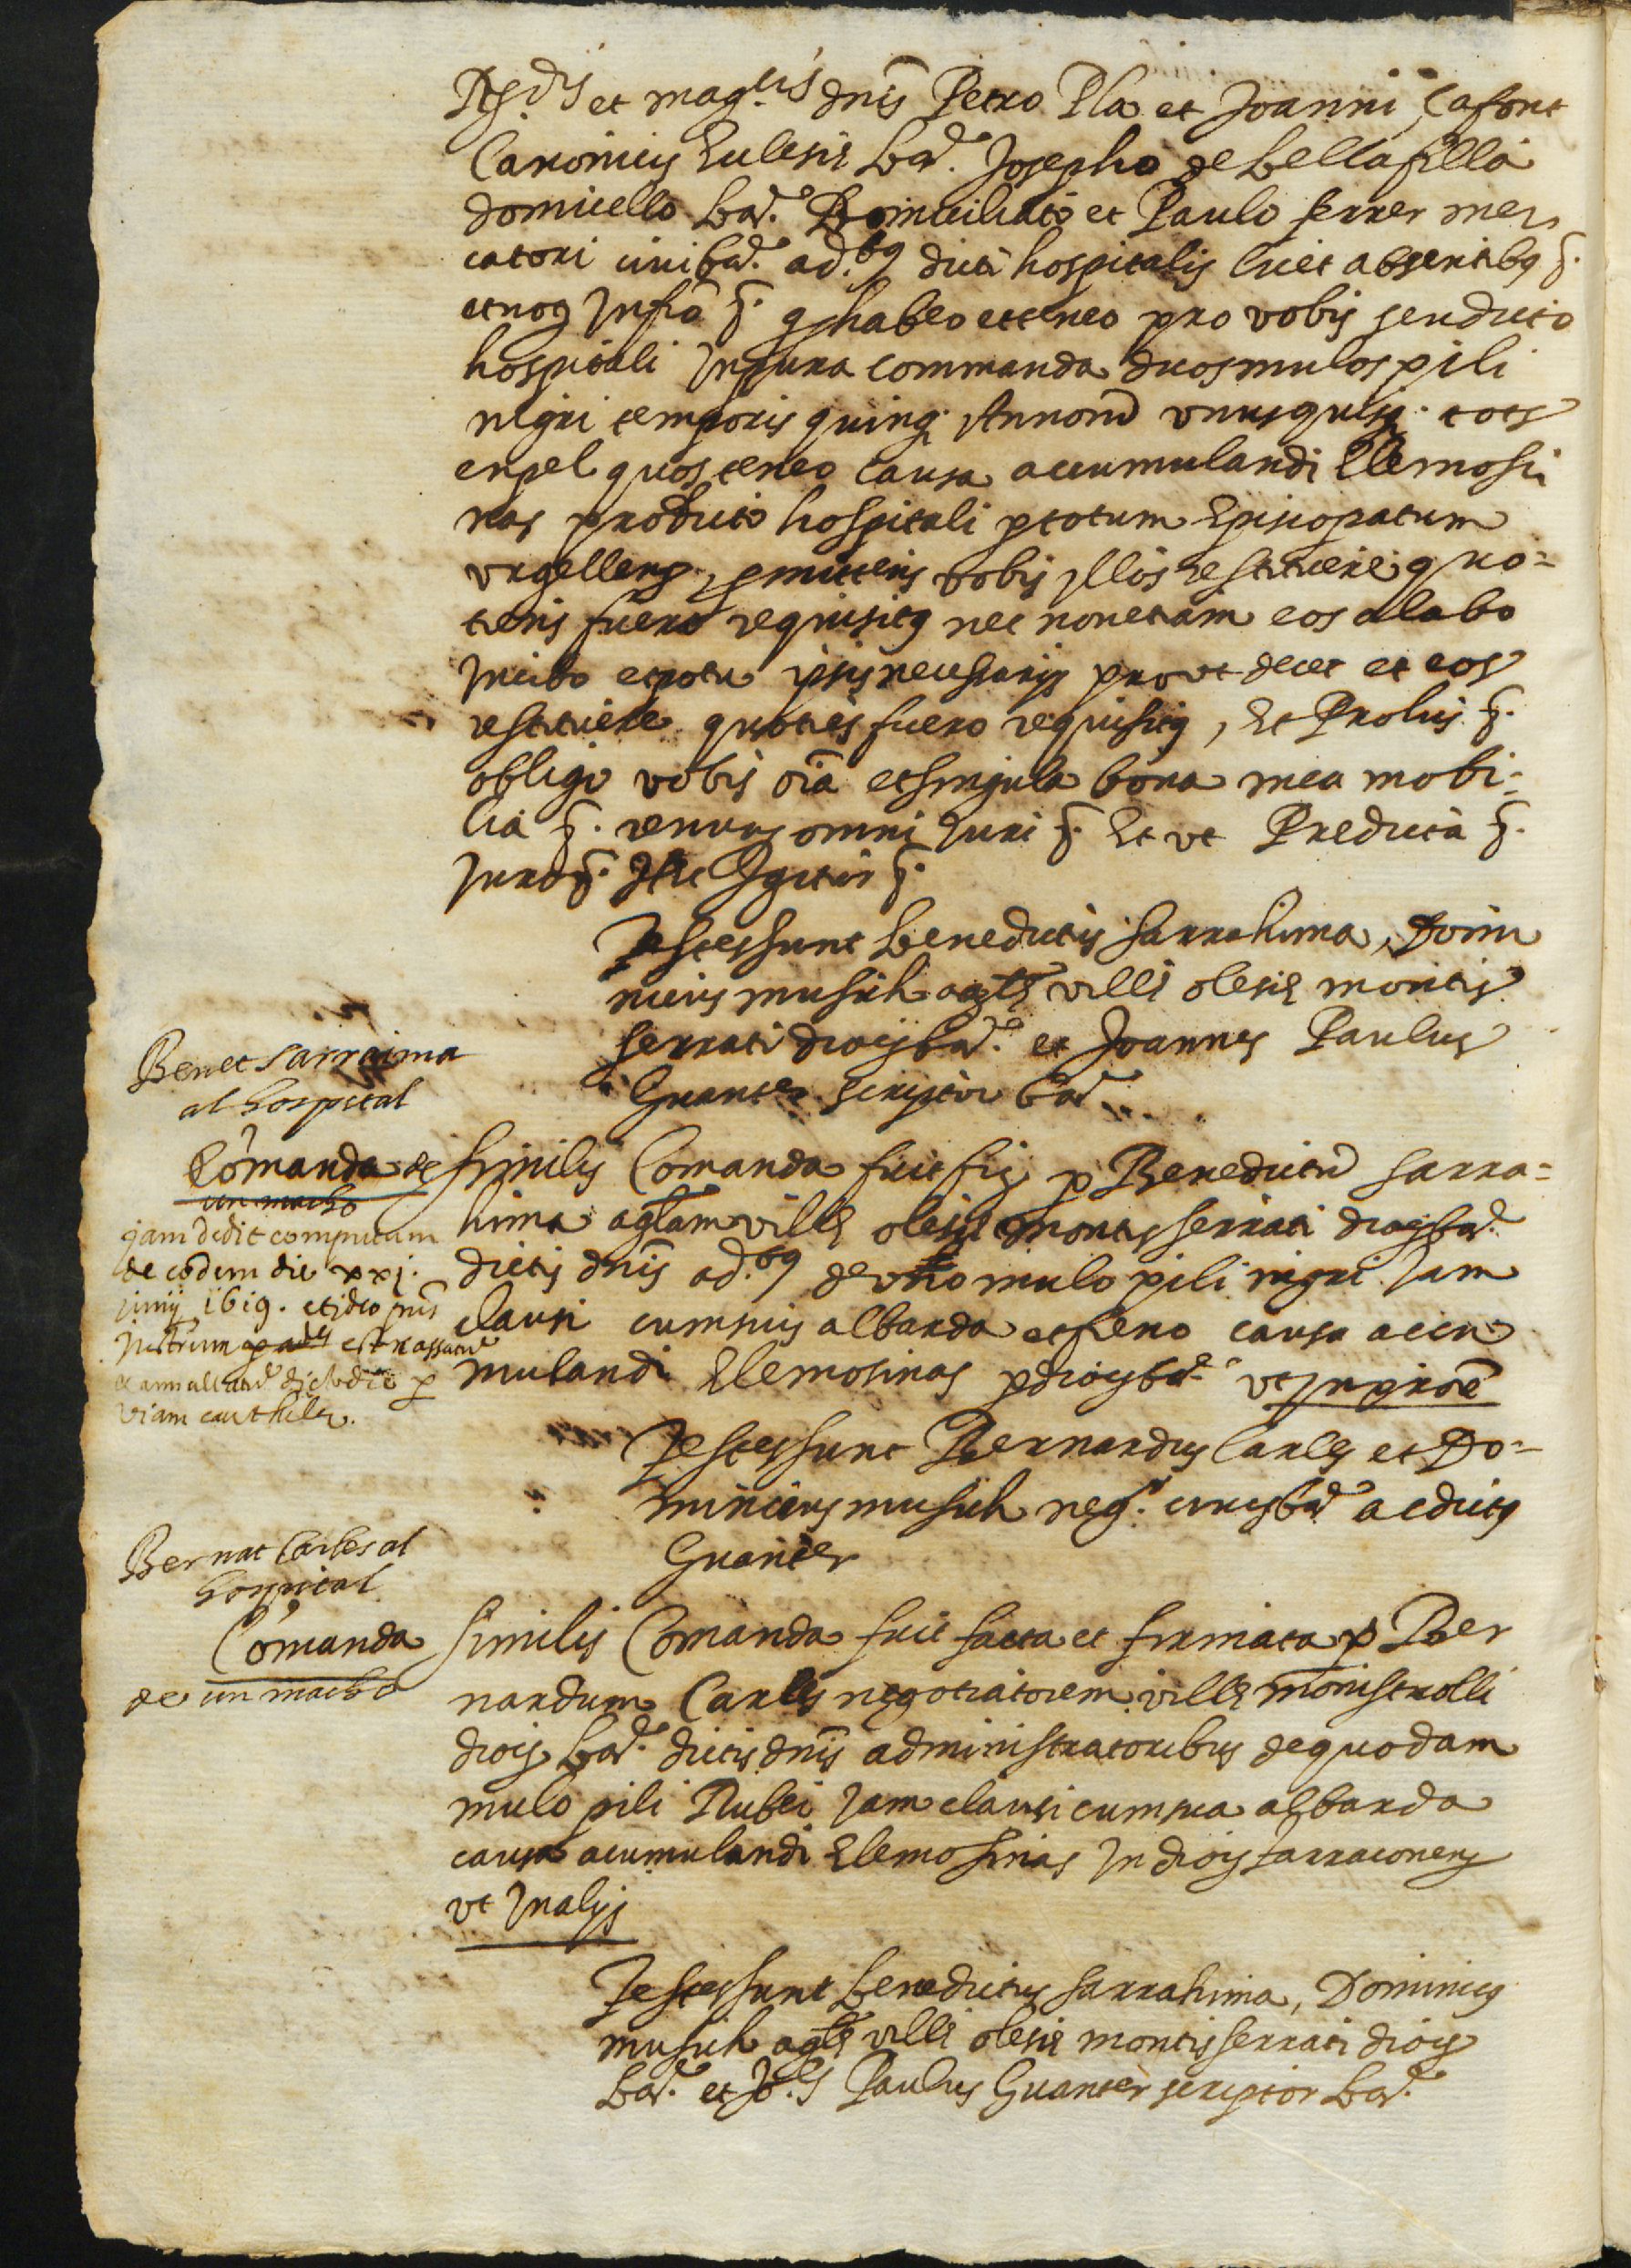 R.dis et mag.cis dnis Petro Pla et Joanni Çafont
Canonicis Ecclesię Bar. Josepho de Bellafilla
domicello Bar. Domiciliato et Paulo ferrer mer
catori civi bar. ad.bus dicti hospitalis licet absentibus &.
et not infra &. q habeo et teneo pro vobis seu dicto
hospitali In pura commanda duos mulos pili
nigri temporis quinq. Annorũ unusquisq. tots
en pel quos teneo causa accumulandi Elemosi
nas pro dicto hospitali p totum Episcopatum
urgellens. promittens vobis Illos restituere quo=
ties fuero requisitus nec non etiam eos alabo
In cibo et potu ipsis necessarijs prout decet et eos
restituere quoties fuero requisitus, Et Pro his &.
obligo vobis oĩa et singula bona mea mobi=
lia &. renuns omni Juri &. Et ut Predicta &.
Juro &. Hec Igitur &.
Testes sunt Benedictus sarrahima, Domi
nicus musich aglę villę olesię montis
serrati diocis bar. et Joannes Paulus
Guanter scriptor bar.
Benet sarraima
al hospital
Comanda de
un macho
jam dedit computum
de eodem die xxj.
junij 1619. et ideo pñs
Instrum est cassatu
viam cauthelę.
similis Comanda fuit fir p Benedictũ sarra=
hima aglam villę olesię montis serrati diocis bar.
dictis dnis ad.bus de uno mulo pili nigri Jam
clausi cum suis albarda et freno causa accu
mulandi Elemosinas p diocis bar. ut In priorẽ
Testes sunt Bernardus Carles et Do=
minicus musich neg. civis bar ac dictus
Guanter
Bernat Carles al
hospital
Comanda
de un macho
Similis Comanda fuit facta et firmata p Ber
nardum Carles negotiatorem villę monistrolli
diocis bar. dictis dnis administratoribus de quodam
mulo pili Rubei Jam clausi cum sua albarda
causa acumulandi Elemosinas In diocis tarraconens
ut In alijs
Testes sunt Benedictus sarrahima, Dominicus
musich aglę villę olesię montis serrati diocis
Bar. et Jo.es Paulus Guanter scriptor Bar.